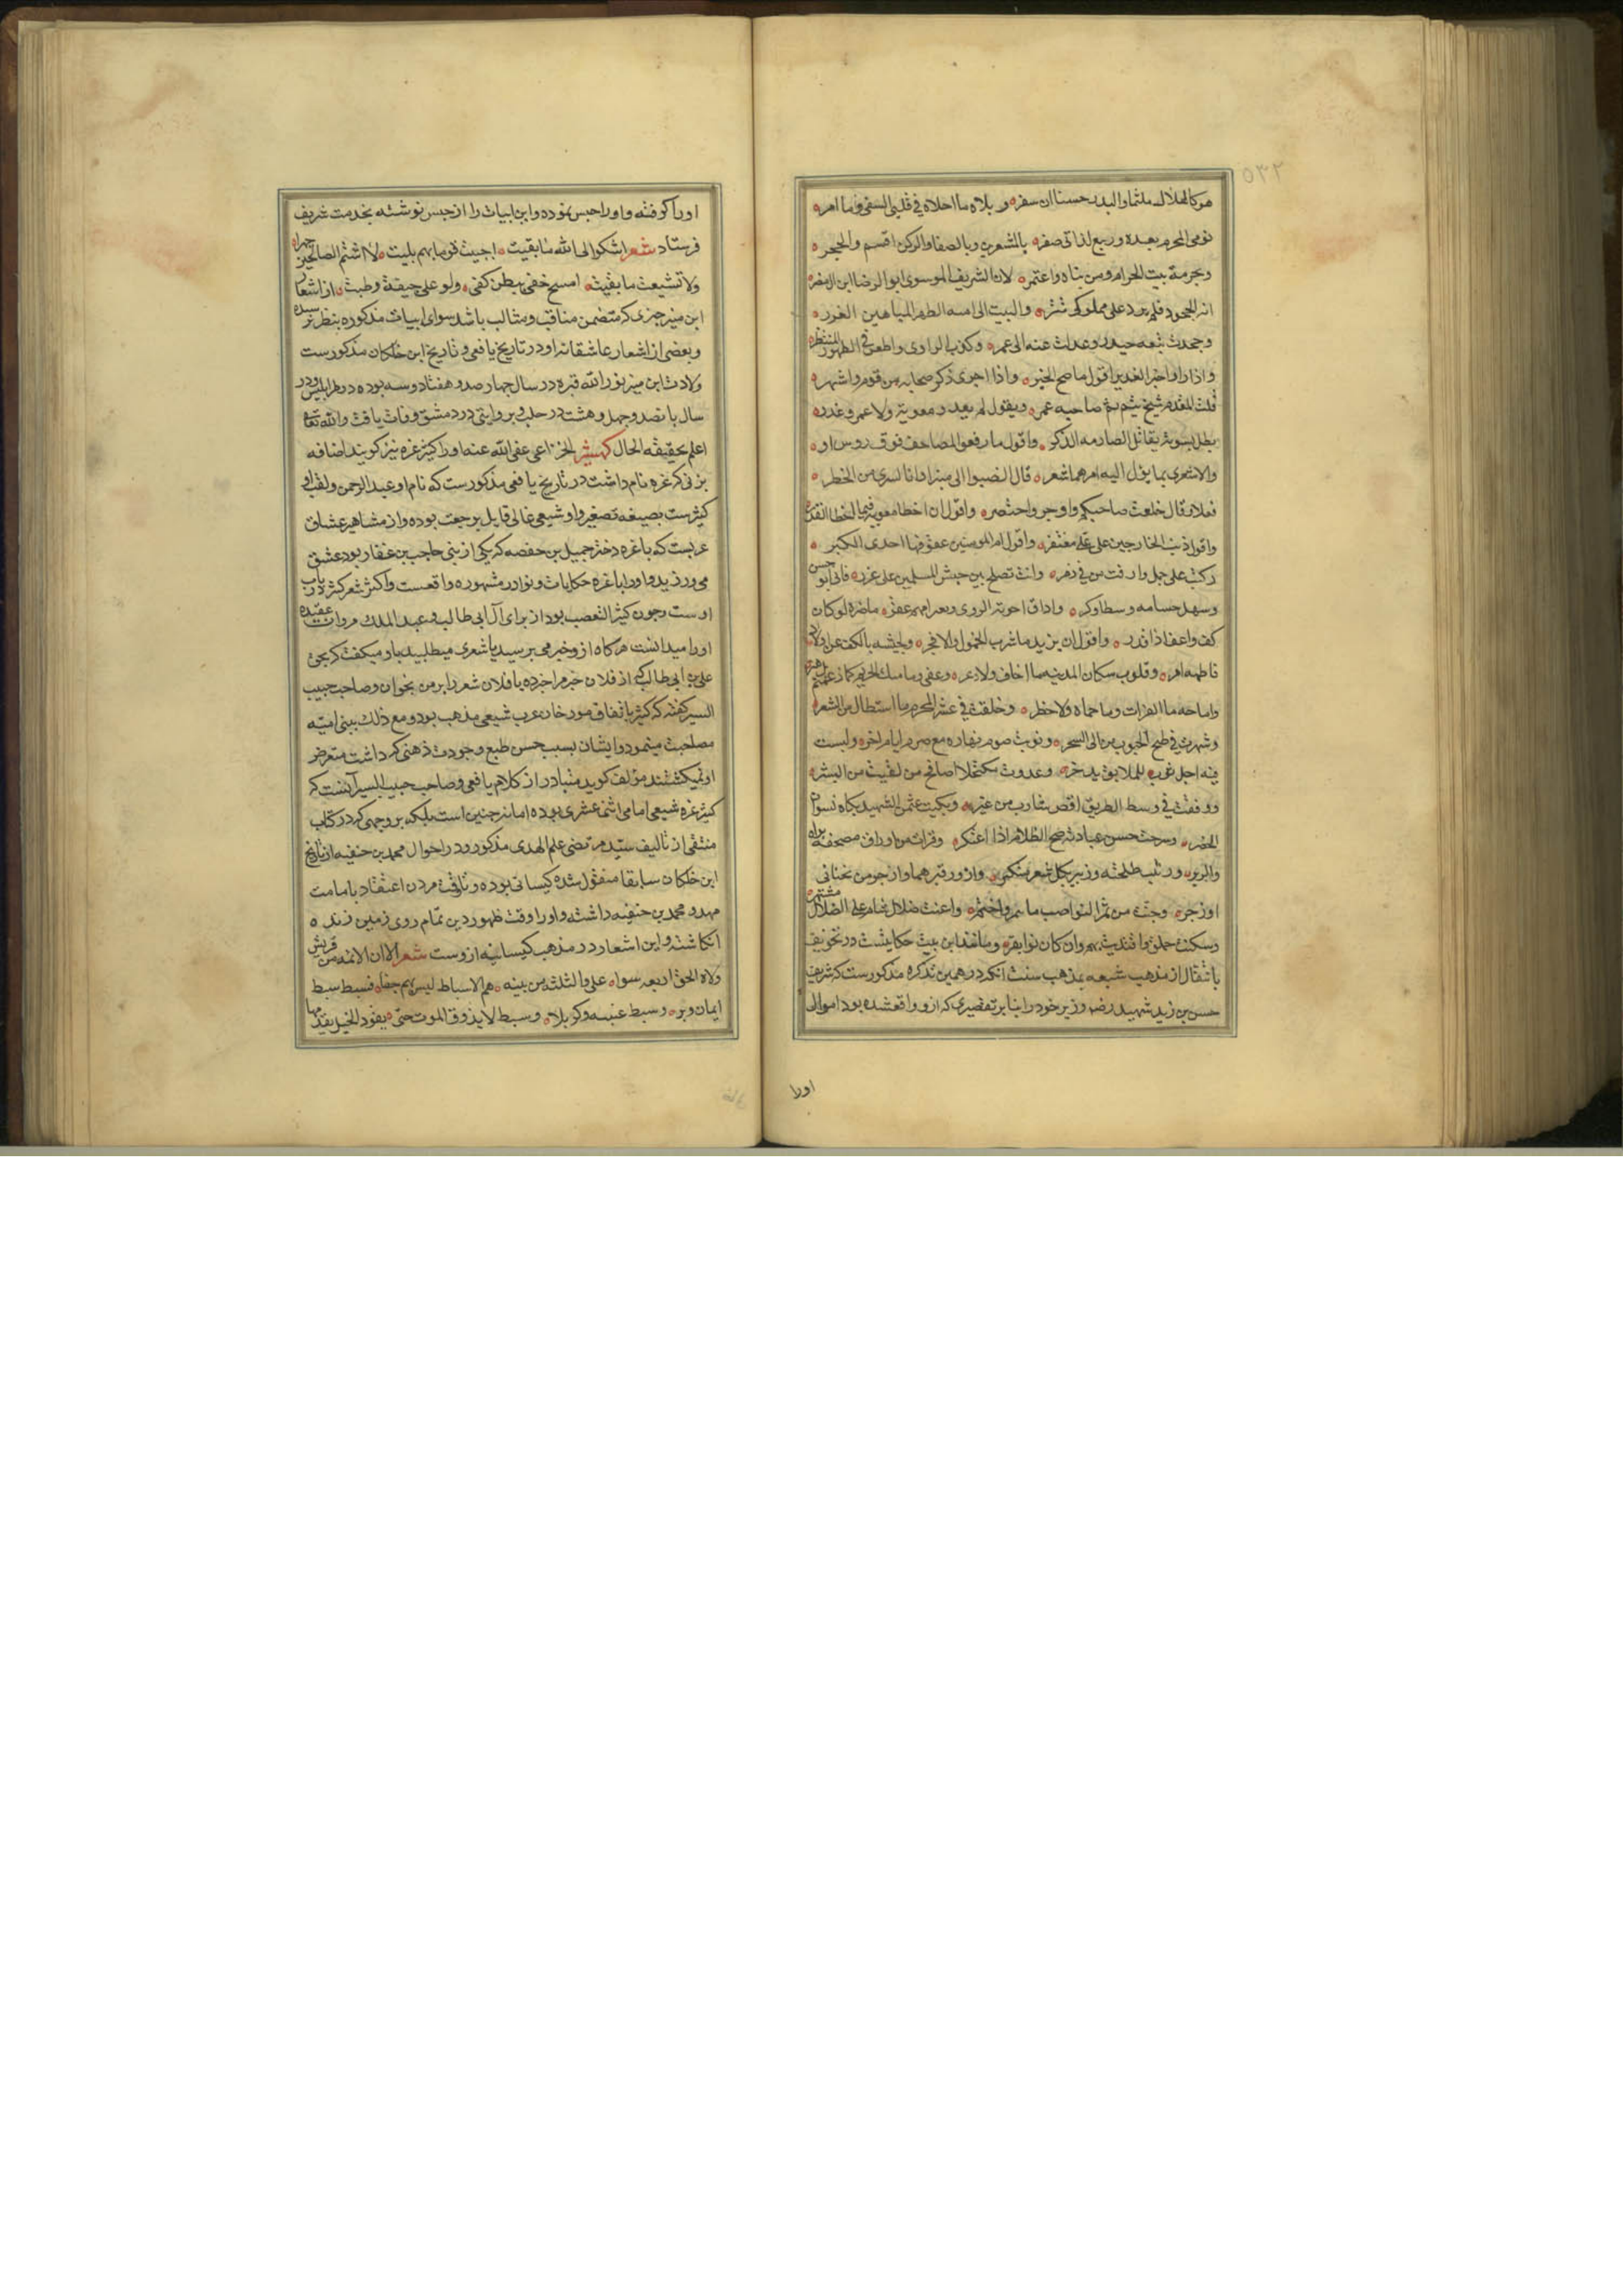 هو كالهلال ملثما والبدر حسنا ان سفره و بلاه ما احلاه في قلبي الشقي وما امره
نومي المحرم بعده وربيع لذاتي صفره بالمشعرين وبالصفا والركن اقسم والحجره
وبحرمة بيت الحرام ومن بناه واعتمره لان الشريف الموسوى ابو الرضا ابن ال مضره
والبيت الى اميه الطهر الميامين الغرره
وجحدت بيعه حيدر وعدلت عنه الى عمره وكذب الراوى واطعن في الظهور المنتظره
واذا راوا خبر الغدير اقول ما صح الخبره واذا اجرى ذكر صحابه بين قوم واشتهره
قلت المقدم شيخ تيم ثم صاحبه عمره ويقول لم يعيد ومعوية ولا عمر وغدره
بطل بسوءته يقاتل الصارمه الذكر واقول ما رفعوا المصاحف فوق روس او
والاشعرى بما يؤل اليه امرهما شعره قال انصبوا الى منبرا فانا البرى من الخطره
فعلا وقال خلعت صاحبكم واوجز واختصره واقول ان اخطا معويه فيما اخطا القدره
واقول ذنب الخارجين على علي مغتفره واقول ام المومنين عقوقها احدى الكبره
ركبت على جمل وارفت من في زمره واتت تصلح بين جيش المسلمين على غرره فاتى ابو حسن
وسهل حسامه وسطا وكره واذاق اخوته الردى وبعد امهم عقره ما ضره لو كان
كف واعف اذا قدره واقول ان يزيد ما شرب الخمول ولا فجره ولجيشه بالكف عن اولاد
فاطمه امره وقلوب سكان المدينه ما اخاف ولا ذعره
واباحه ماء الفرات وما حماه ولا حظره وحلقت في عشر المحرم ما استطال من الشعره
وشهرت في طبخ الحبوب من الى السحره ونويت صوم نهاره مع صوم ايام اخره ولبست
فيه اجل ثوب للملابق يدخره وغدوت مكتحلا اصافح من لقيت من البشره
ووقفت في وسط الطريق اقص شارب من عبره وبكيت عثمن الشهيد بكاه نسوان
الحضره وشرحت حسن عبادته جنح الظلام اذا اعتكره وقرات من اوراق مصحفه براه
والزبره ورثيت طلحه وزبير بكل شعر مبتكره وازور قبرهما وازجر من نحانى
اوزجره وجنيت من ثمر النواصب ما نمر واختمره واعنت ضلال شام على الضلال مشتهره
وسكنت جلق واقتديت بهم وان كان نوا بقره ومانند این بیت حکایتیست در تخویف
بانتقال از مذهب شیعه بمذهب سنت آنکه در همین تذکره مذکورست که شریف
حسن بن زید شهید رضه وزیر خود را بنا بر تقصیرى که ازو واقعشده بود اموال
اورا
اورا کوفته واورا حبس نموده واین ابیات را از حبس نوشته بخدمت شریف
فرستاد شعر اشكو الى الله ما بقيت اجبت قوما بهم بليت لا اشتم الصالحين جهراه
ولا تشيعت ما بقيت امسح خفي ببطن كفي ولو على جيفة وطيت از اشعار
ابن منیر چیزی که متضمن مناقب ومثالب باشد سوای ابیات مذکوره بنظر نرسیده
وبعضی از اشعار عاشقانه او در تاریخ یافعی وتاریخ ابن خلکان مذکورست
ولادت ابن منیر نور الله قبره در سال چهارصد وهفتاد وسه بوده در طرابلس ودر
سال پانصد وچهل وهشت در حلب وبروایتی در دمشق وفات یافت والله تعا
اعلم بحقیقه الحال کثیر الخزاعی عفی الله عنه اورا کثیر عزه نیز گویند اضافه
بزنی که عزه نام داشت در تاریخ یافعی مذکورست که نام او عبد الرحمن ولقب او
کثیرست بصیغه تصغیر واو شیعی غالی قایل برجعت بوده واز مشاهیر عشاق
عربست که با عزه دختر جمیل بن حفصه که یکی از بنی حاجب بن غفار بود عشق
می ورزید واورا با عزه حکایات ونوادر مشهوره واقعست واکثر شعر کثیر در باب
اوست وچون کثیر التعصب بود از برای آل ابی طالب وعبد الملک مروان عقیده
اورا میدانست هرگاه ازو خبر می پرسید یا شعری میطلبید باو میگفت که بحق
علی بن ابی طالب که از فلان خبر مرا خبر ده یا فلان شعر را بر من بخوان وصاحب حبیب
السیر گفته که کثیر باتفاق مورخان عرب شیعی مذهب بود ومع ذلک ببنی امیه
مصاحبت مینمود وایشان بسبب حسن طبع وجودت ذهنی که داشت متعرض
او نمیگشتند مولف گوید متبادر از کلام یافعی وصاحب حبیب السیر آنست که
کثیر عزه شیعی امامی اثنا عشری بوده اما نه چنین است بلکه بر وجهی که در کتاب
منتقی از تالیف سید مرتضی علم الهدی مذکور ودر احوال محمد بن حنفیه از تاریخ
ابن خلکان سابقا منقول شده کیسانی بوده وتا وقت مردن اعتقاد بامامت
مهدو محمد بن حنفیه داشته واورا وقت ظهور دین تمام روی زمین زنده
انکاشته واین اشعار در مذهب کیسانیه ازوست شعر الا ان الائمه من قریش
ولاة الحق اربعه سواه على والثلثة من بنيه هم الاسباط ليس بهم خفاه فسبط سبط
ايمان وبره وسبط غيبه وكربلاه وسبط لا يذوق الموت حتى يقود الخيل يقدمها